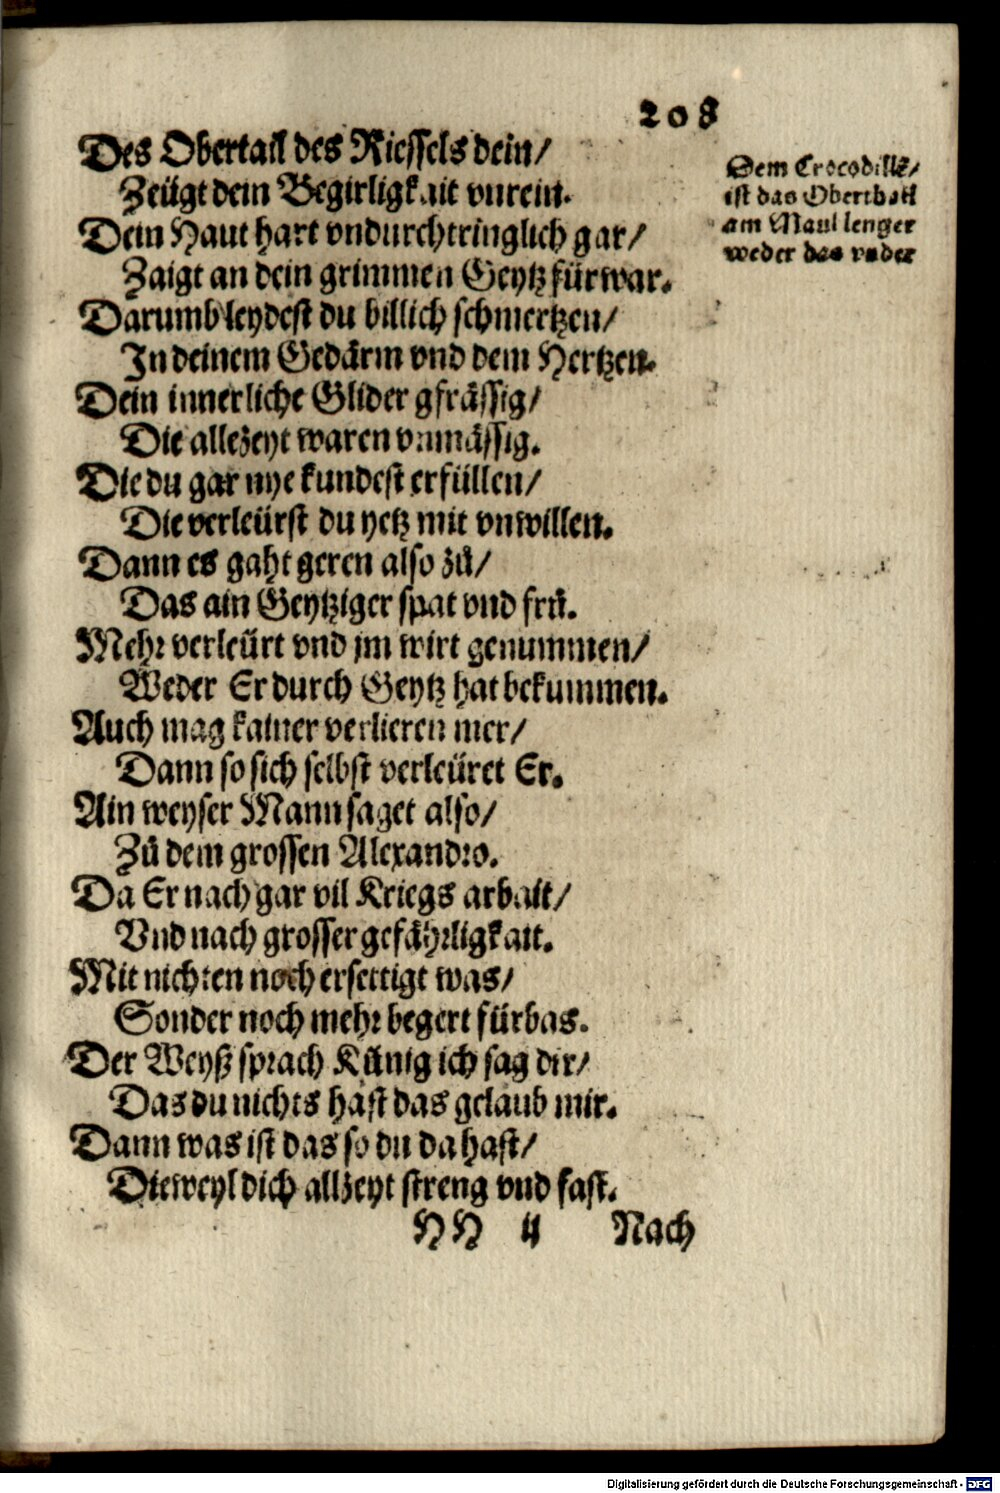 208
Des Obertail des Riessels dein/
Zeügt dein Begirligkait vnrein.
Dein Haut hart vndurchtringlich gar/
Zaigt an dein grimmen Geytz fürwar.
Darumb leydest du billich schmertzen/
In deinem Gedärm vnd dem Hertzen.
Dein innerliche Glider gfrässig/
Die allezeyt waren vnmässig.
Die du gar nye kundest erfüllen/
Die verleürst du yetz mit vnwillen.
Dann es gaht geren also zů/
Das ain Geytziger spat vnd frů.
Mehr verleürt vnd jm wirt genummen/
Weder Er durch Geytz hat bekummen.
Auch mag kainer verlieren mer/
Dann so sich selbst verleüret Er.
Ain weyser Mann saget also/
Zů dem grossen Alexandro.
Da Er nach gar vil Kriegs arbait/
Vnd nach grosser gefährligkait.
Mit nichten noch ersettigt was/
Sonder noch mehr begert fürbas.
Der Weyß sprach Künig ich sag dir/
Das du nichts hast das gelaub mir.
Dann was ist das so du da hast/
Dieweyl dich allzeyt streng vnd fast.
HH ij Nach
Dem Crocodille/
ist das Oberthail
am Maul lenger
weder das vnder
Digitalisierung gefördert durch die Deutsche Forschungsgemeinschaft - DFG